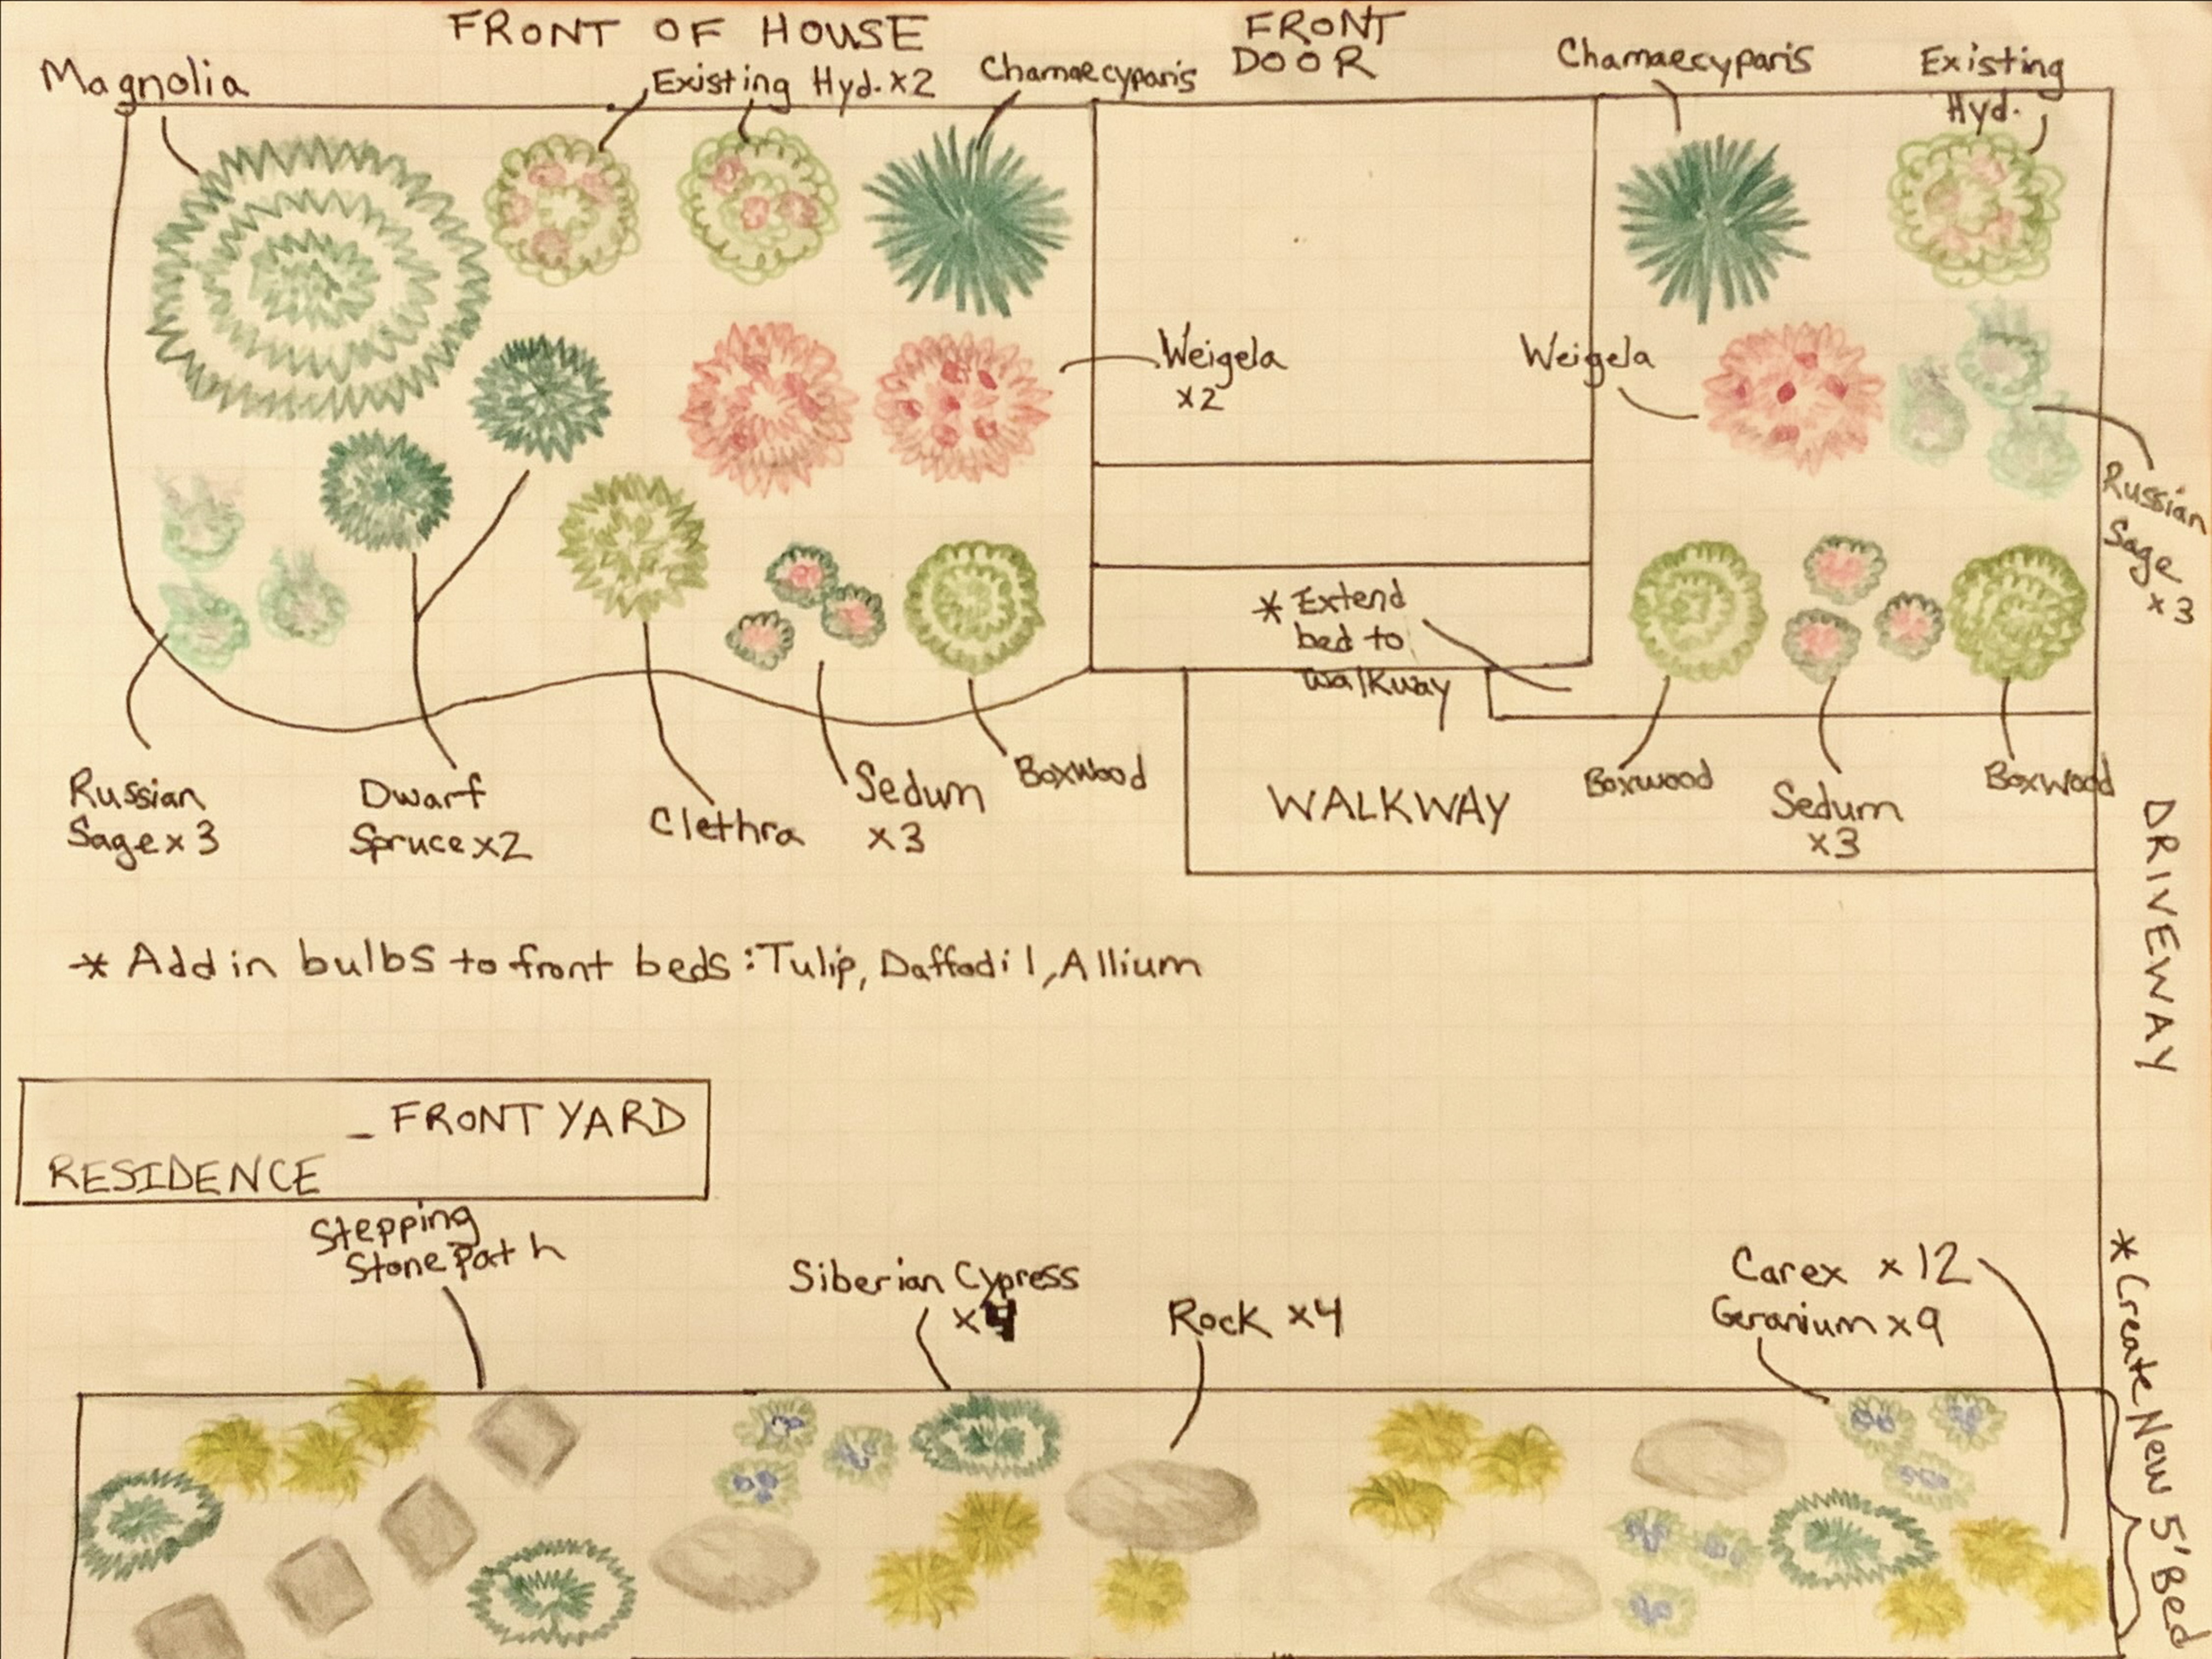 FRONT OF HOUSE
FRONT
DOOR
Magnolia
Existing Hyd. x2
Chamaecyparis
Chamaecyparis
Existing
Hyd.
Weigela
x2
Weigela
Russian
Sage
x3
* Extend
bed to
walkway
Russian
Sage x 3
Dwarf
Spruce x2
Clethra
Sedum
x3
Boxwood
WALKWAY
Boxwood
Sedum
x3
Boxwood
DRIVEWAY
* Add in bulbs to front beds: Tulip, Daffodil, Allium
_ FRONT YARD
RESIDENCE
Stepping
Stone Path
Siberian Cypress
x4
Rock x4
Carex x12
Geranium x9
* Create New 5' Bed